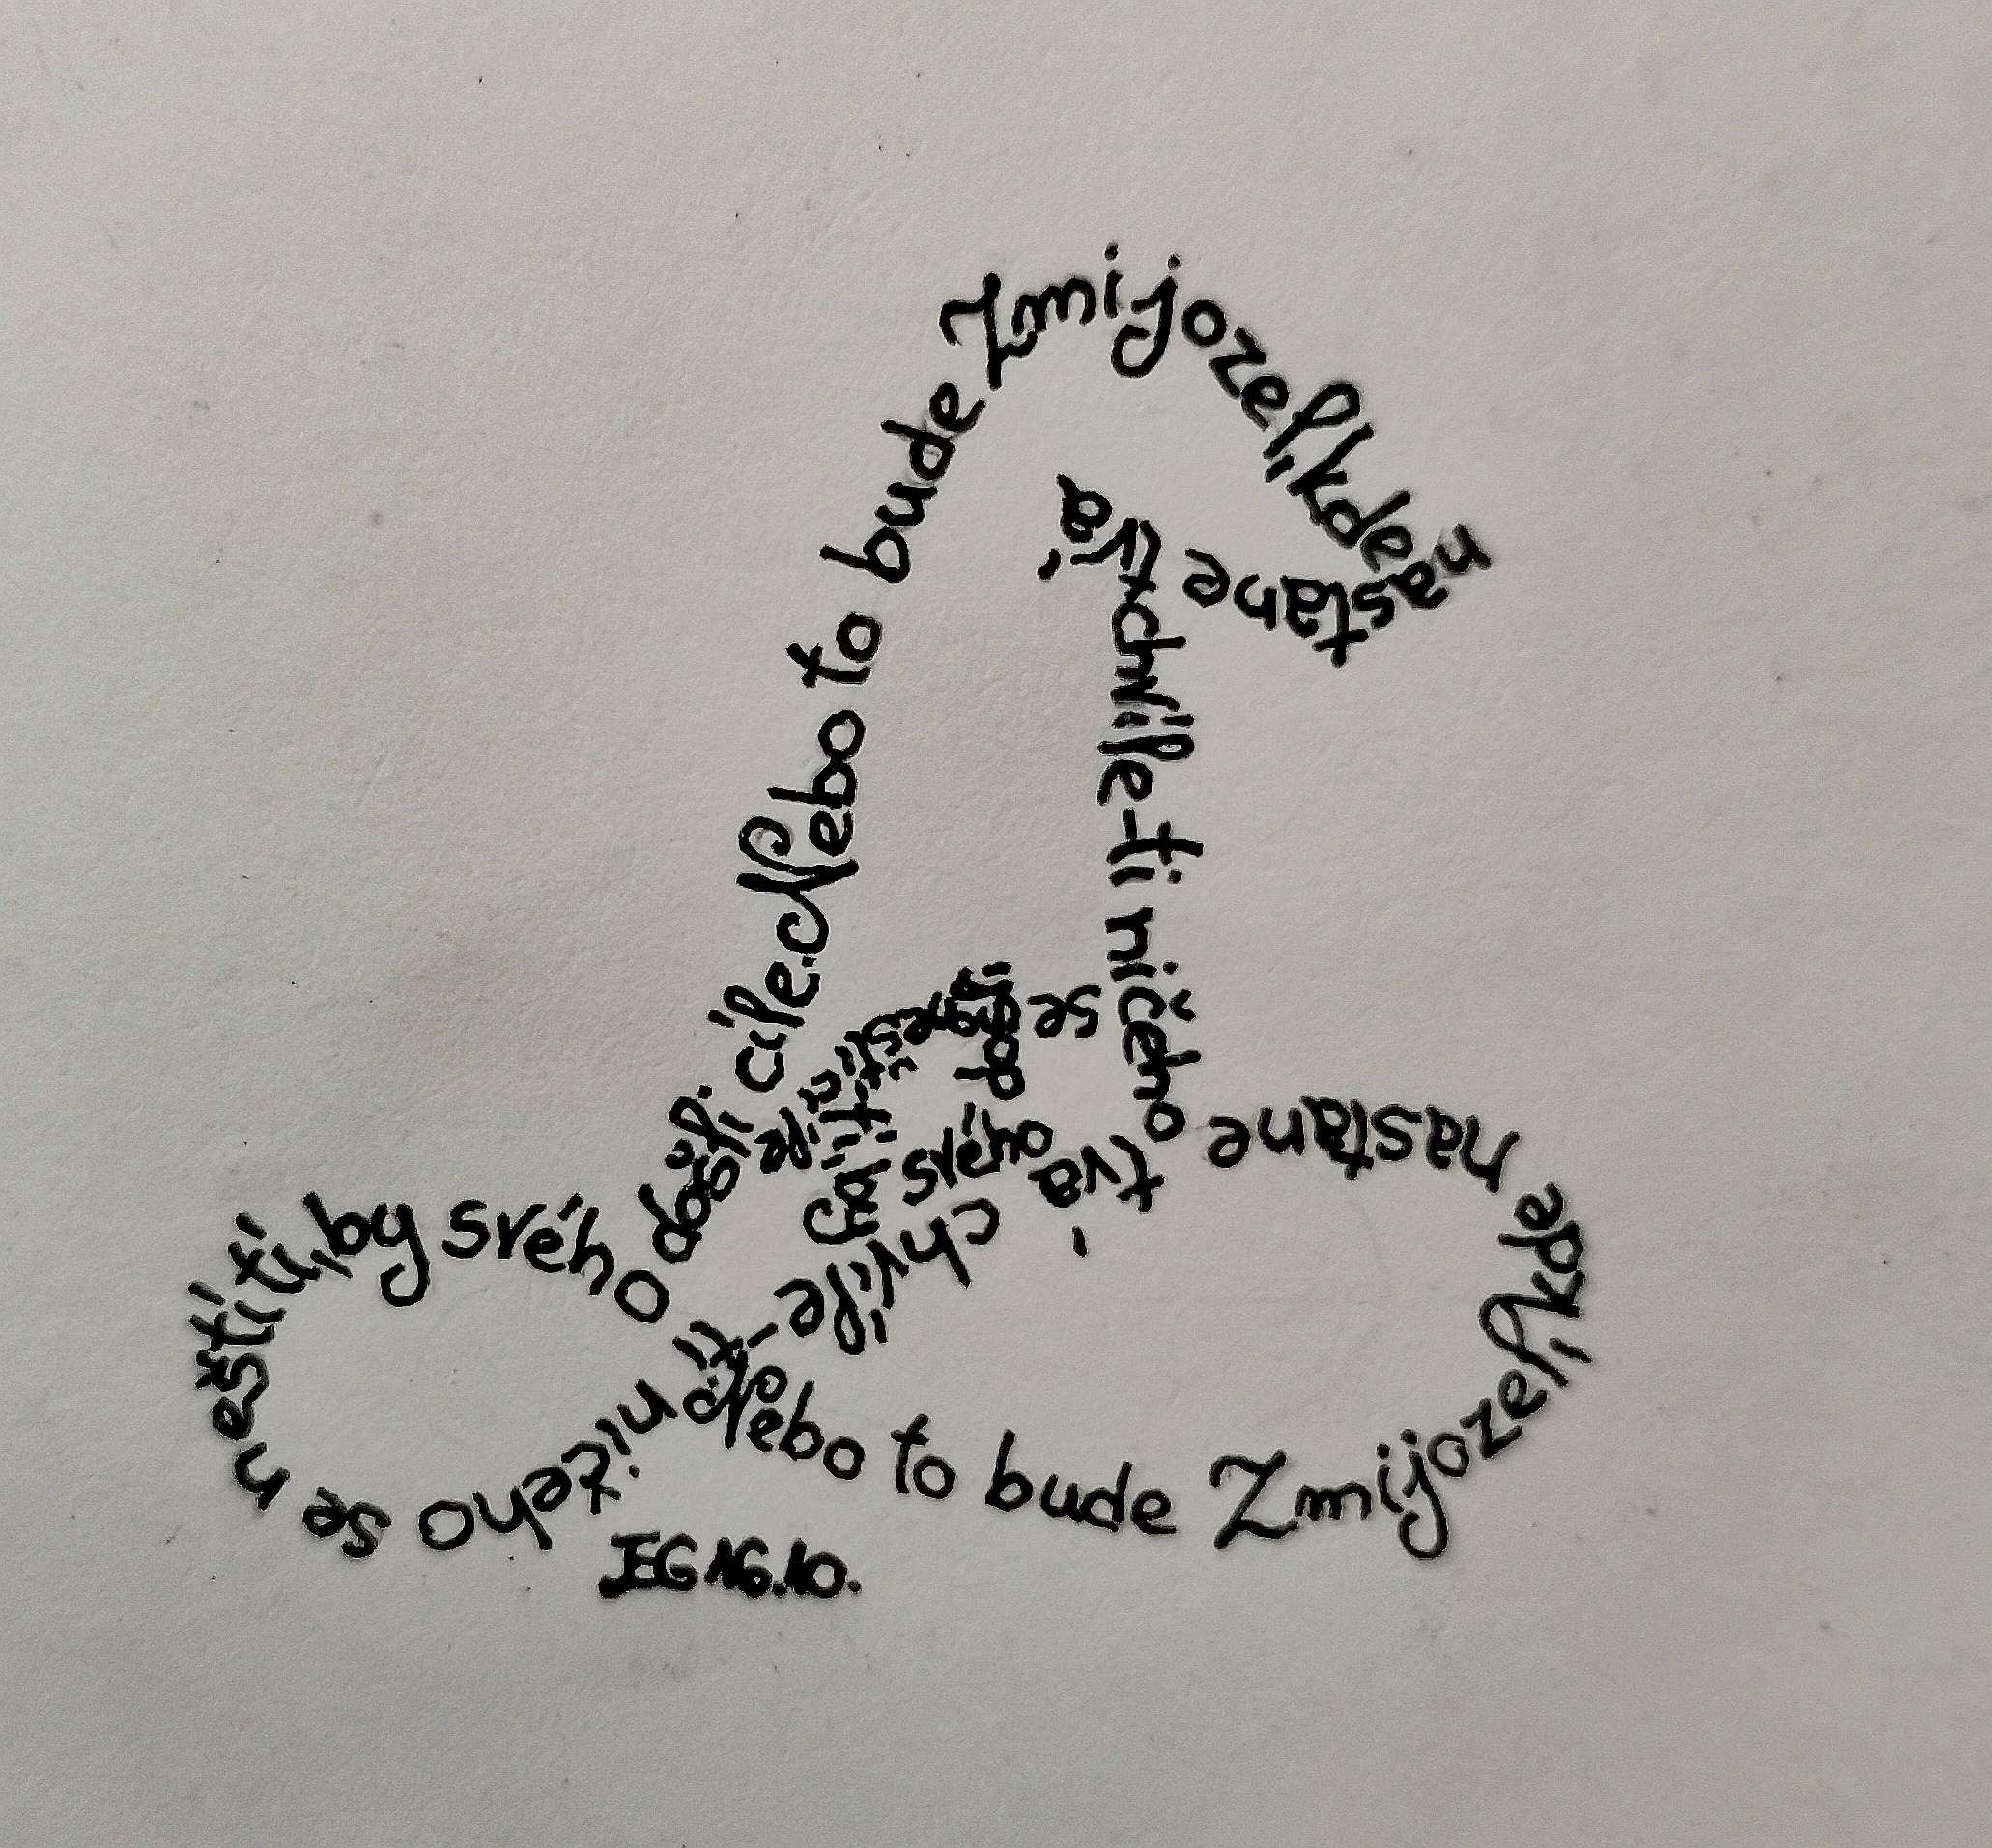 Nebo to bude Zmijozel, kde nastane tvá chvíle-ti ničeho se neštítí, by svého došli cíle.
Nebo to bude Zmijozel, kde nastane tvá chvíle-ti ničeho se neštítí, by svého došli cíle.
EG 16.10.